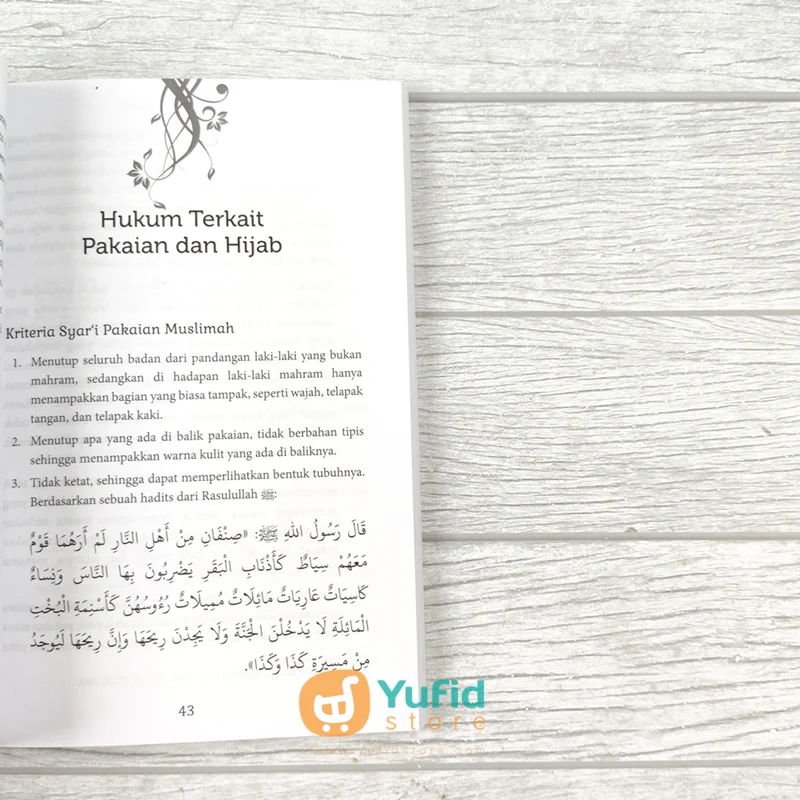 Hukum Terkait
Pakaian dan Hijab
Kriteria Syar‘i Pakaian Muslimah
1. Menutup seluruh badan dari pandangan laki-laki yang bukan
mahram, sedangkan di hadapan laki-laki mahram hanya
menampakkan bagian yang biasa tampak, seperti wajah, telapak
tangan, dan telapak kaki.
2. Menutup apa yang ada di balik pakaian, tidak berbahan tipis
sehingga menampakkan warna kulit yang ada di baliknya.
3. Tidak ketat, sehingga dapat memperlihatkan bentuk tubuhnya.
Berdasarkan sebuah hadits dari Rasulullah ﷺ:
قَالَ رَسُولُ اللهِ ﷺ: «صِنْفَانِ مِنْ أَهْلِ النَّارِ لَمْ أَرَهُمَا قَوْمٌ
مَعَهُمْ سِيَاطٌ كَأَذْنَابِ الْبَقَرِ يَضْرِبُونَ بِهَا النَّاسَ وَنِسَاءٌ
كَاسِيَاتٌ عَارِيَاتٌ مَائِلَاتٌ مُمِيلَاتٌ رُءُوسُهُنَّ كَأَسْنِمَةِ الْبُخْتِ
الْمَائِلَةِ لَا يَدْخُلْنَ الْجَنَّةَ وَلَا يَجِدْنَ رِيحَهَا وَإِنَّ رِيحَهَا لَيُوجَدُ
مِنْ مَسِيرَةِ كَذَا وَكَذَا».
43
Yufid
store
www.yufidstore.com